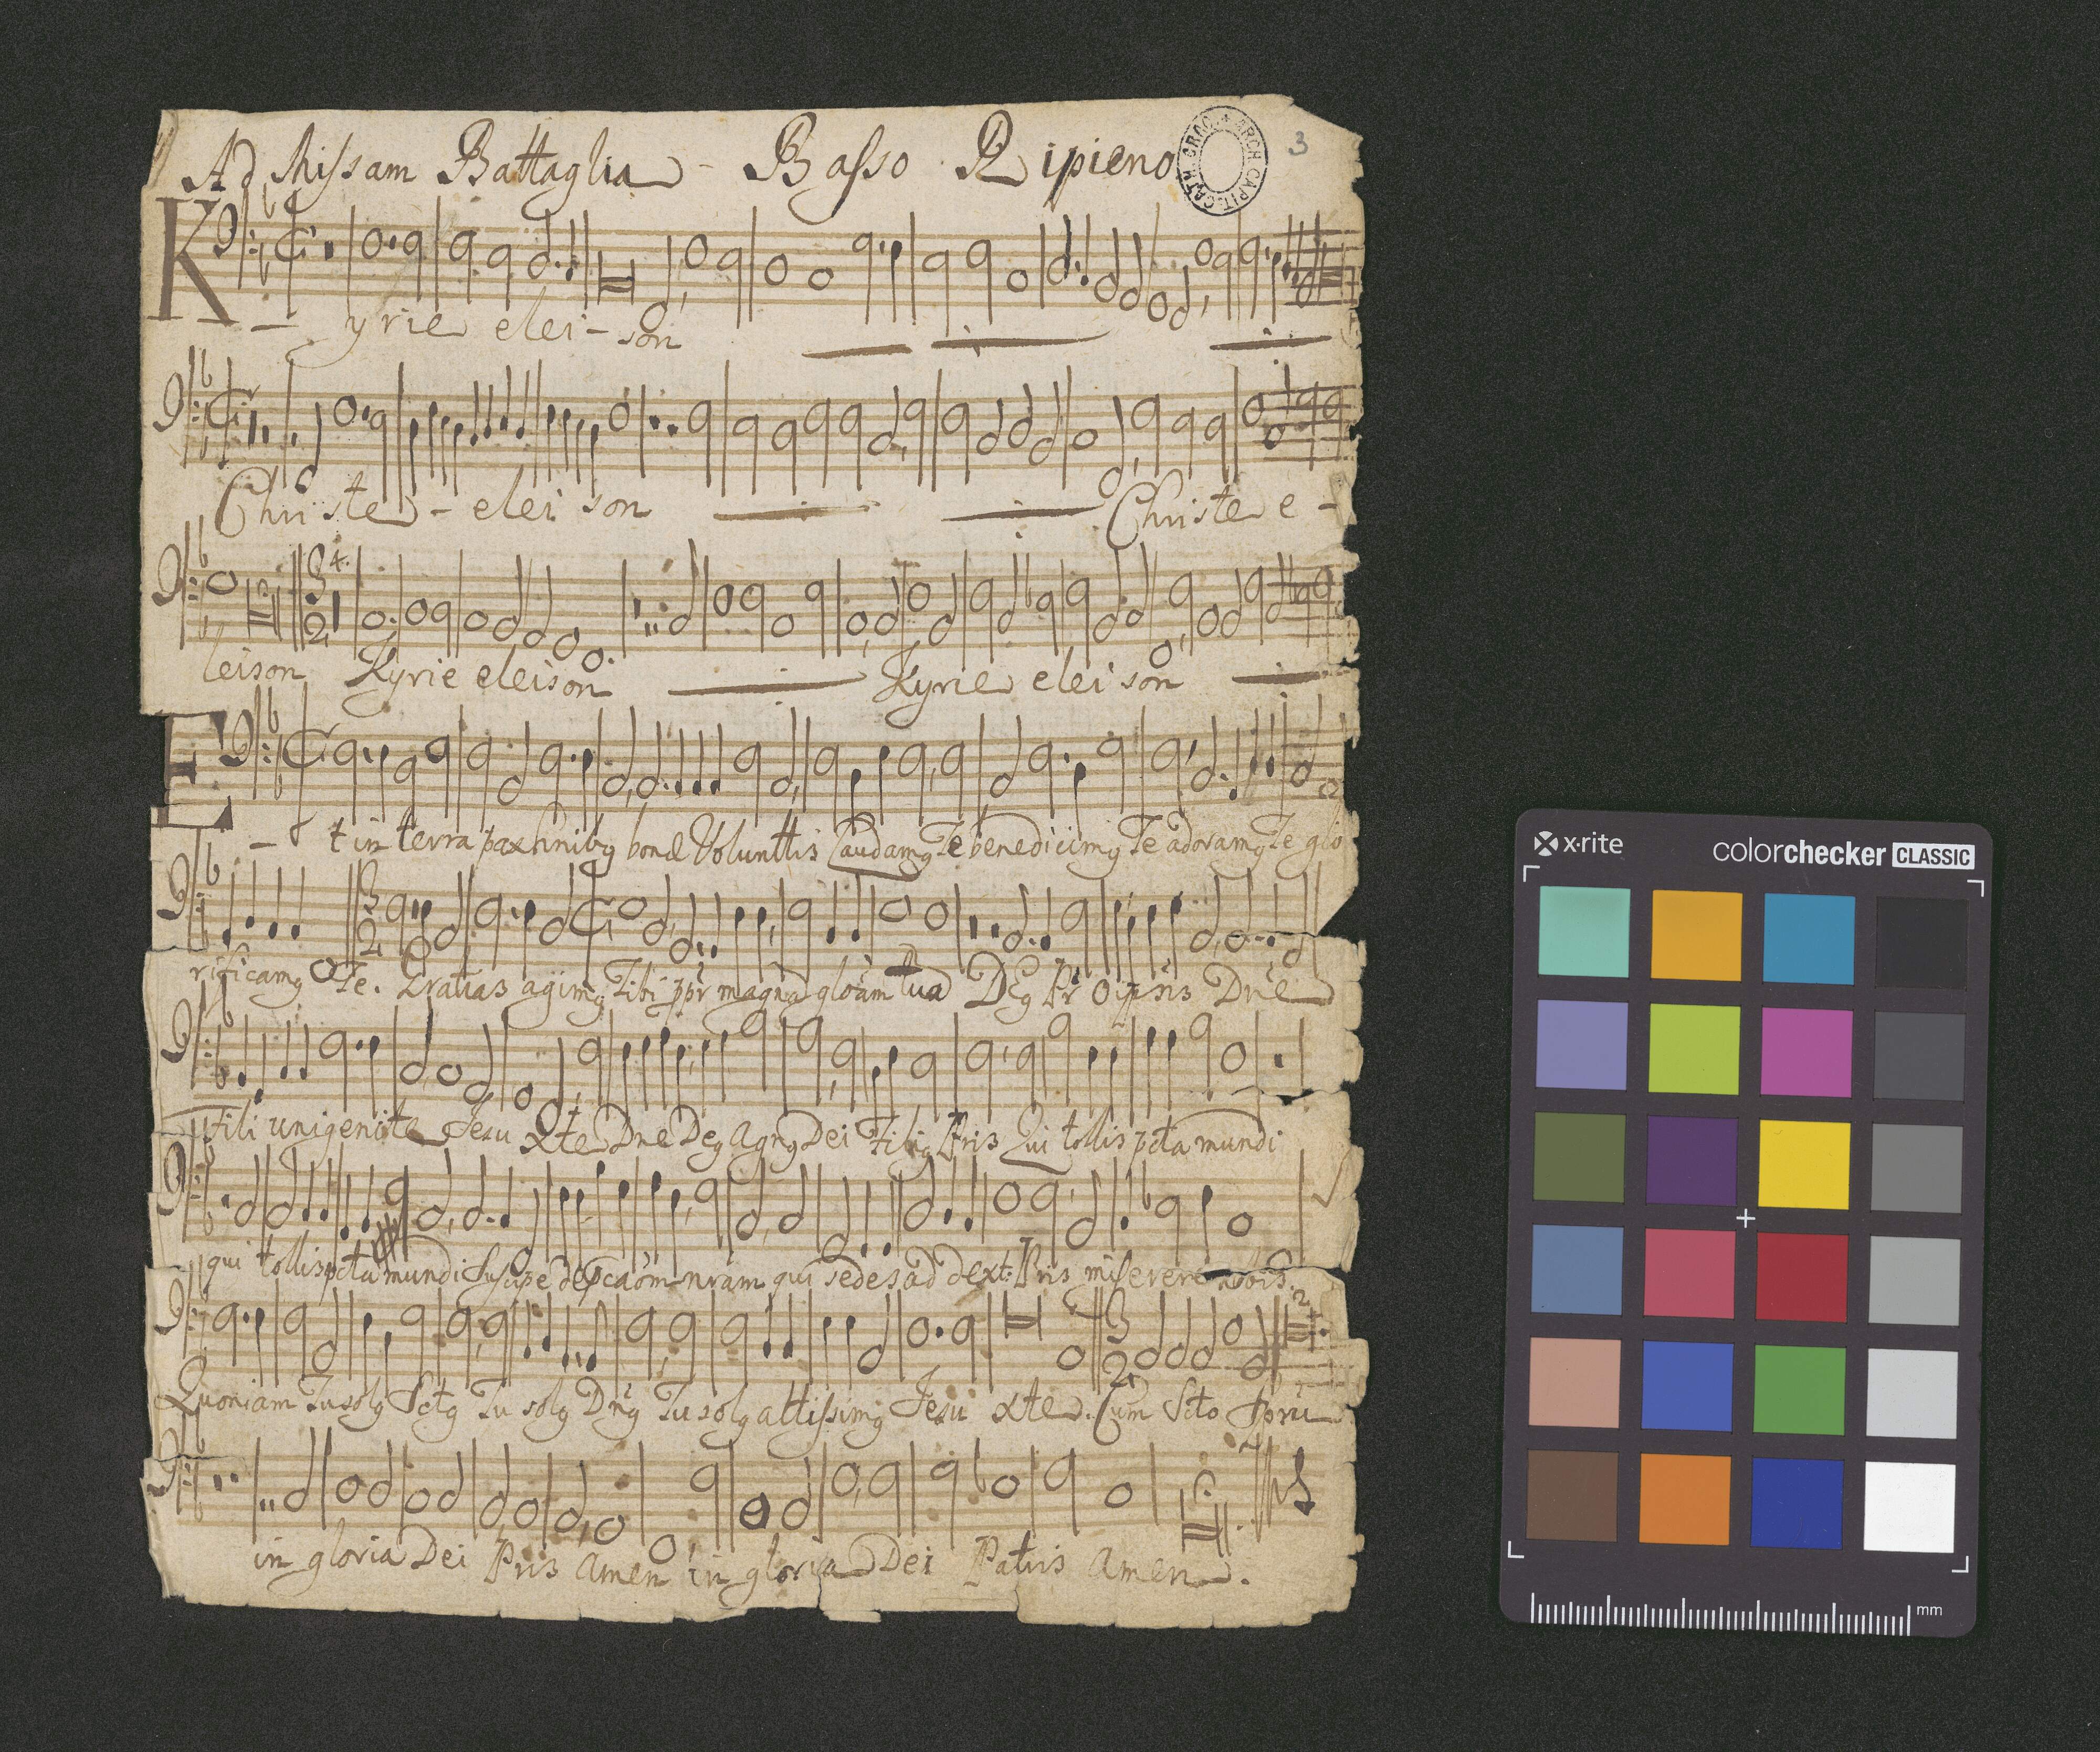 Ad Missam Battaglia - Basso Ripieno
ARCH. CAPIT. CATH. CRAC.
3
Kyrie elei-son
Christe - elei son Christe e -
leison Kyrie eleison Kyrie elei son
Et in terra pax hnibg bonæ Volunttis Laudamg Te benedicimg Te adoramg Te glo
rificamg Te. Gratias agimg Tibi ppr magna gloam tua Deg Pr Oips Dne
Fili unigenite Jesu Xte Dne Deg Agng Dei Filig Pris Qui tollis pcta mundi
qui tollis pcta mundi Suscipe depcaom nram qui sedes ad dext: Pris miserere nobis.
Quoniam Tu solg Sctg Tu solg Dng Tu solg altissimg Jesu xte. Cum Scto Spru
in gloria Dei Pris Amen in gloria Dei Patris Amen.
x·rite
colorchecker CLASSIC
mm